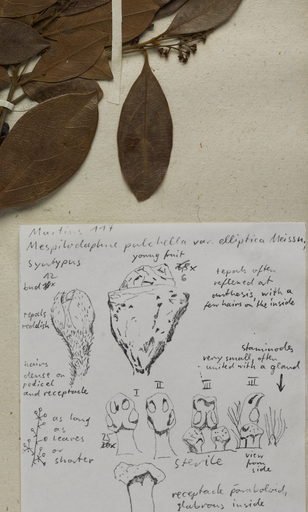 Martius 117
Mespilodaphne pulchella var. elliptica Meissn.,
Syntypus
young fruit
12
bud
6
tepals often
reflexed at
anthesis, with a
few hairs on the inside
tepals
reddish
staminodes
very small, often
united with a gland
hairs
dense on
pedicel
and receptacle
I
II
III
III
as long
as
leaves
or
shorter
sterile
view
from
side
receptacle paraboloid,
glabrous inside